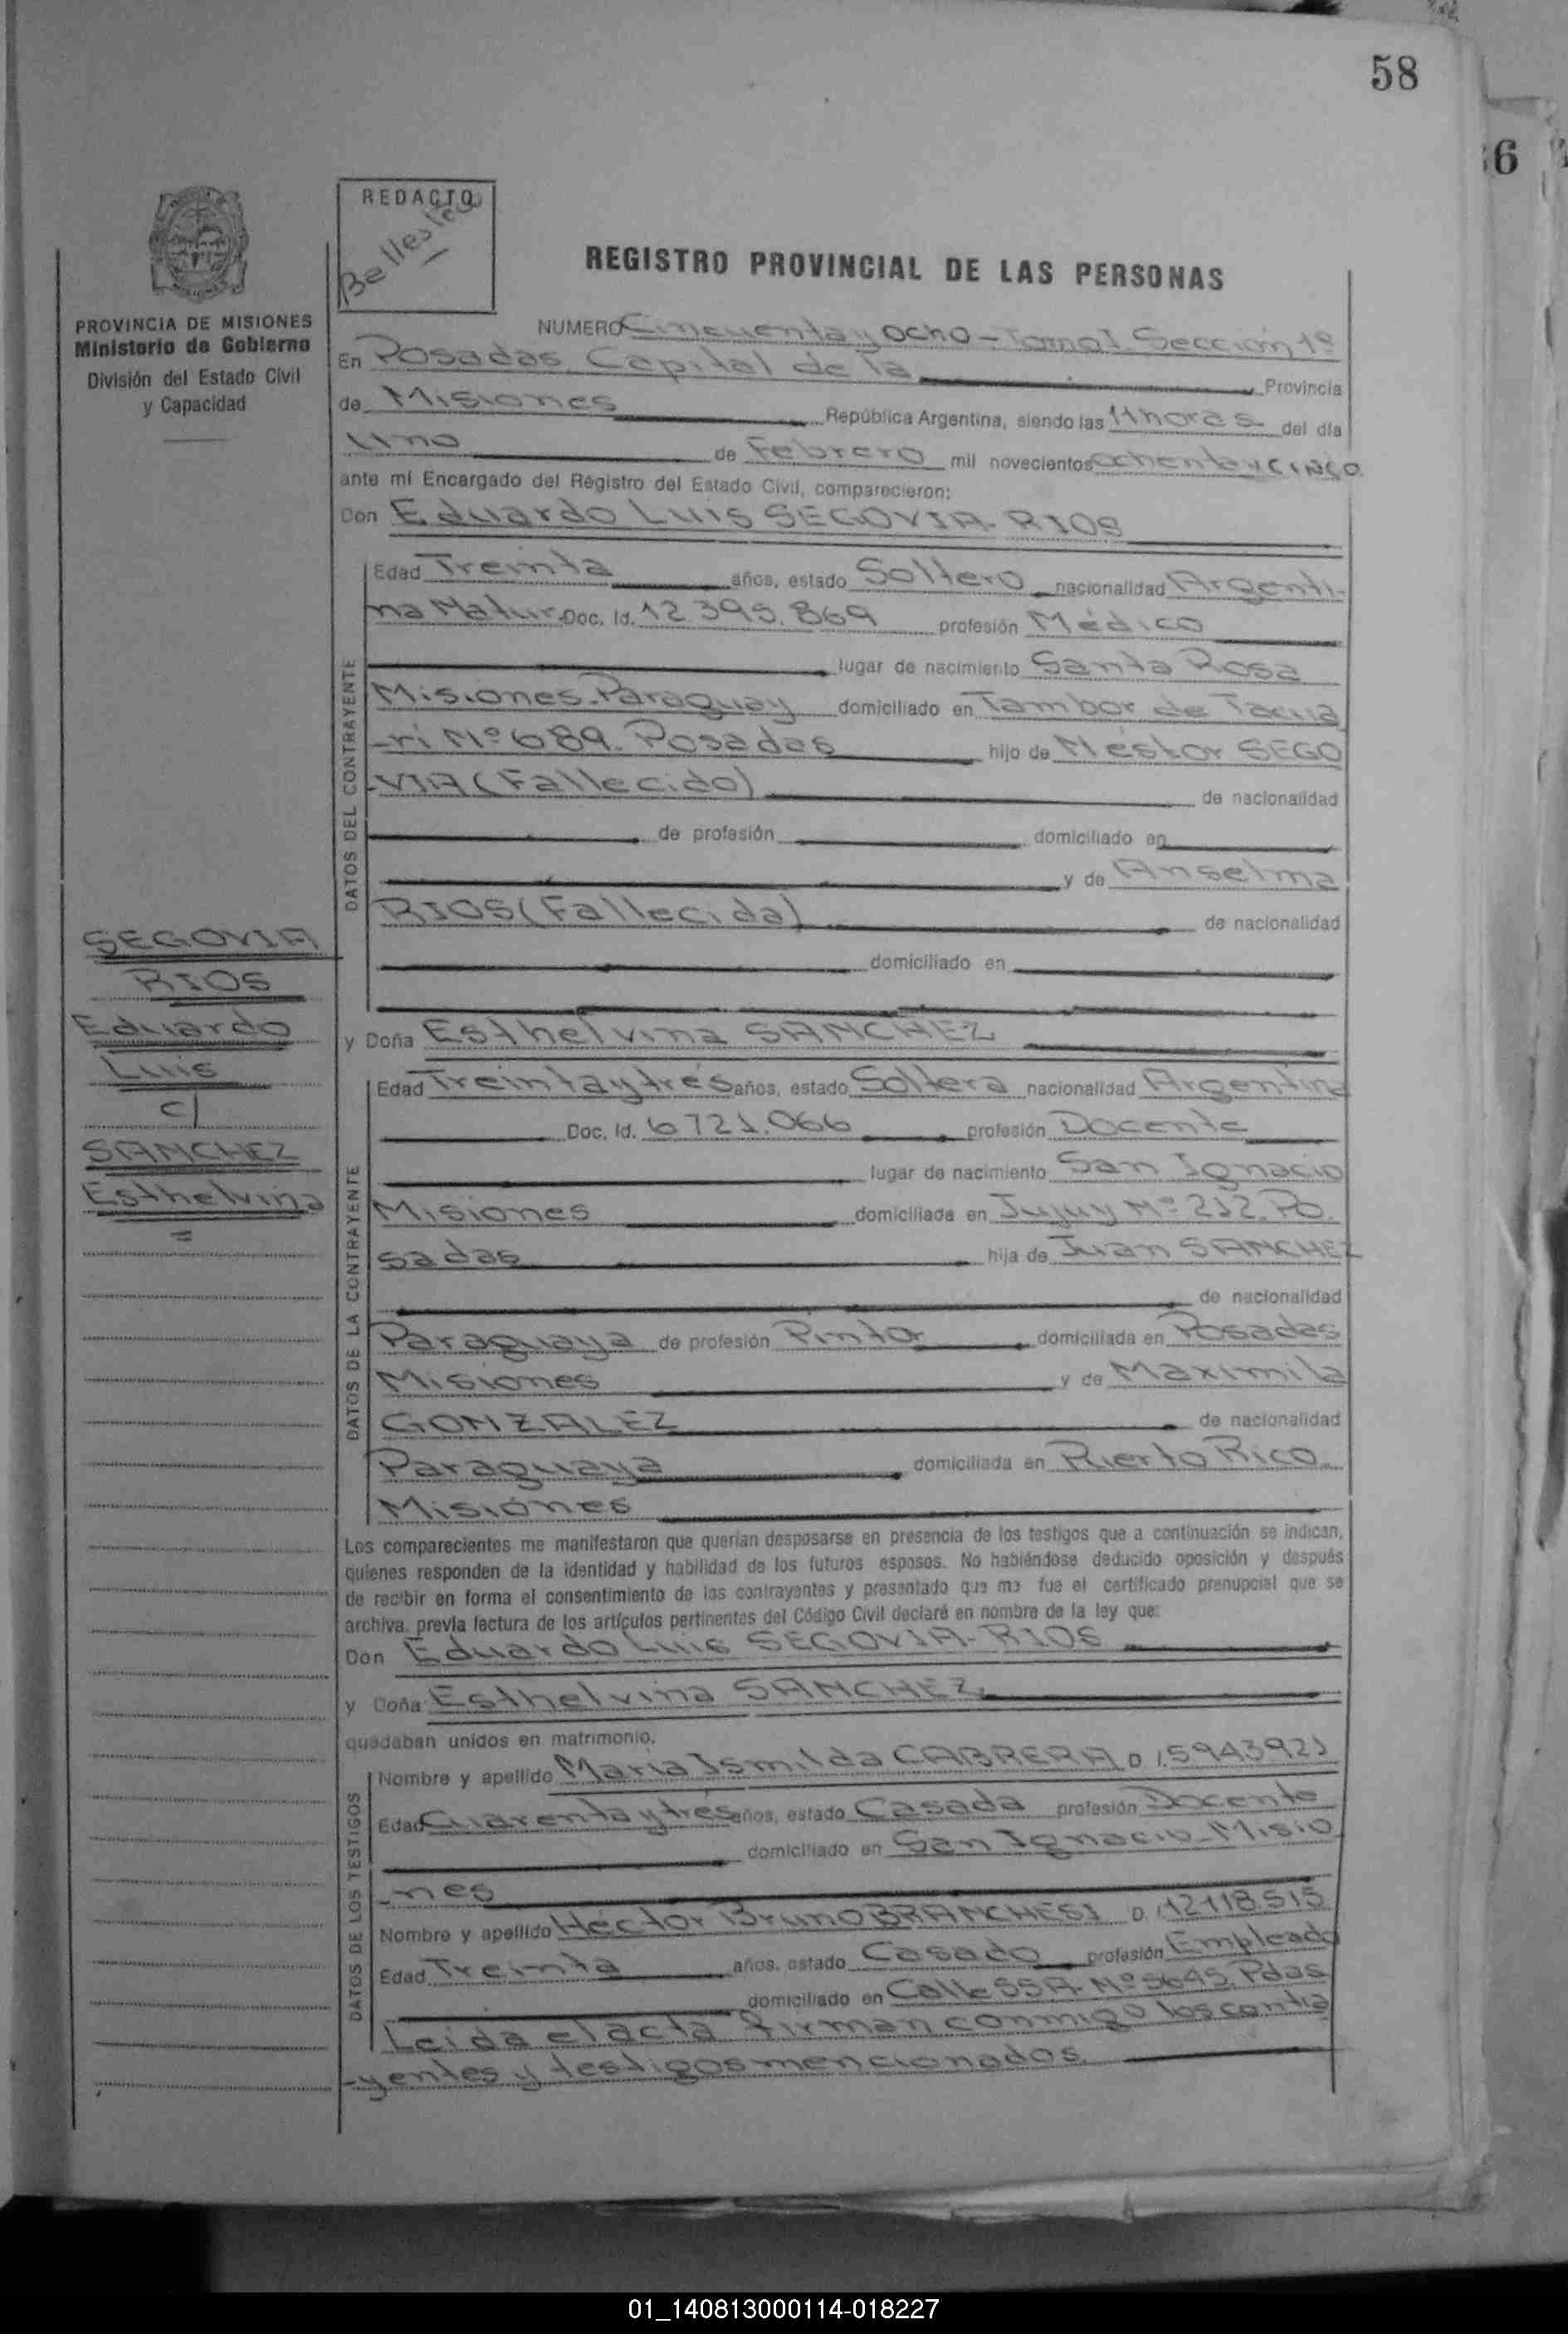 58
6
REDACTO
Ballesteo
REGISTRO PROVINCIAL DE LAS PERSONAS
PROVINCIA DE MISIONES
Ministerio de Gobierno
División del Estado Civil
y Capacidad
NUMERO Cincuenta y ocho - Tomo 1. Sección 1º
En Posadas, Capital de la Provincia
de Misiones República Argentina, siendo las 11 horas del día
uno de Febrero mil novecientos ochenta y CINCO
ante mí Encargado del Registro del Estado Civil, comparecieron:
Don Eduardo Luis SEGOVIA-RIOS
DATOS DEL CONTRAYENTE
Edad Treinta años, estado Soltero nacionalidad Argenti-
na Natur. Doc. Id. 12.395.869 profesión Médico
lugar de nacimiento Santa Rosa
Misiones-Paraguay domiciliado en Tambor de Tacua
-ri Nº 689. Posadas hijo de Néstor SEGO
-VIA (Fallecido) de nacionalidad
de profesión domiciliado en
y de Anselma
RIOS (Fallecida) de nacionalidad
domiciliado en
SEGOVIA
RIOS
Eduardo
Luis
c/
SANCHEZ
Esthelvina
=
y Doña Esthelvina SANCHEZ
DATOS DE LA CONTRAYENTE
Edad Treinta y tres años, estado Soltera nacionalidad Argentina
Doc. Id. 6721.066 profesión Docente
lugar de nacimiento San Ignacio
Misiones domiciliada en Jujuy Nº 212. Po.
sadas hija de Juan SANCHEZ
de nacionalidad
Paraguaya de profesión Pintor domiciliada en Posadas
Misiones y de Maximila
GONZALEZ de nacionalidad
Paraguaya domiciliada en Puerto Rico.
Misiones
Los comparecientes me manifestaron que querían desposarse en presencia de los testigos que a continuación se indican,
quienes responden de la identidad y habilidad de los futuros esposos. No habiéndose deducido oposición y después
de recibir en forma el consentimiento de los contrayentes y presentado que me fue el certificado prenupcial que se
archiva, previa lectura de los artículos pertinentes del Código Civil declaré en nombre de la ley que:
Don Eduardo Luis SEGOVIA-RIOS
y Doña Esthelvina SANCHEZ
quedaban unidos en matrimonio.
DATOS DE LOS TESTIGOS
Nombre y apellido Maria Ismilda CABRERA D.I. 5943921
Edad Cuarenta y tres años, estado Casada profesión Docente
domiciliado en San Ignacio-Misio
-nes
Nombre y apellido Héctor Bruno BRANCHESI D.I. 12.118.515
Edad Treinta años, estado Casado profesión Empleado
domiciliado en Calle 55A. Nº 5645. Pdas
Leída el acta firman conmigo los contra
-yentes y testigos mencionados.
01_140813000114-018227